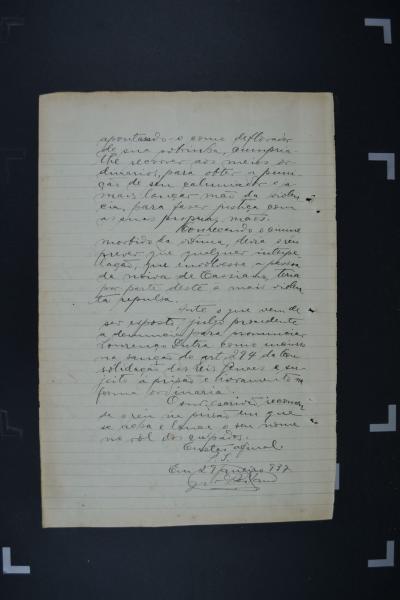 apontando-o como deflorador
de sua sobrinha, cumpria-
lhe recorrer aos meios or
dinarios, para obter a puni-
ção de seu calumniador e
mais lançar mão da violen
cia, para fazer justiça com
as suas proprias mãos.
Conhecendo o ciume
morbido da victima, devia o réu
prever que qualquer interpe
lação, que envolvesse a pessoa
da noiva de Cassiano, teria
por parte deste a mais violen
ta repulsa.
Isto o que vem de
ser exposto, julgo procedente
a denuncia para pronunciar
Lourenço Dutra como incurso
na sancção do art. 294 da Con
solidação das Leis Penaes e su
jeito a prisão e livramento na
forma ordinaria.
O escrivão recommen
de o réu na prisão em que
se acha e lance o seu nome
no rol dos culpados.
Custas afinal.
Em 27 Janeiro 937